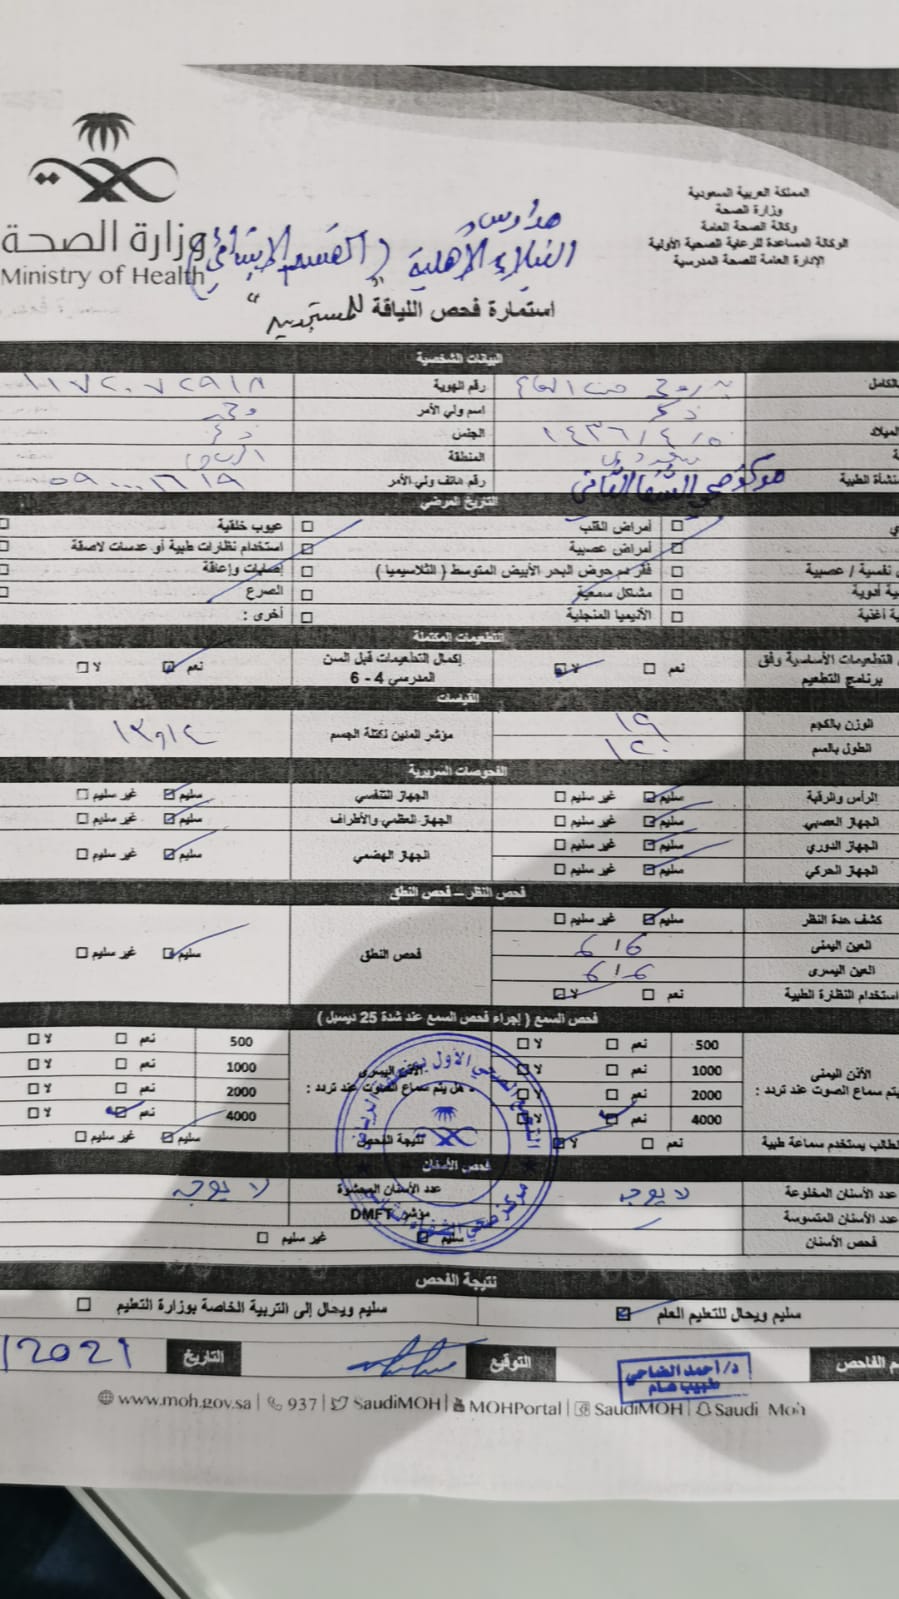 المملكة العربية السعودية
وزارة الصحة
وكالة الصحة العامة
الوكالة المساعدة للرعاية الصحية الأولية
الإدارة العامة للصحة المدرسية
وزارة الصحة
Ministry of Health
مدارس
الأهلية (القسم الابتدائي)
استمارة فحص اللياقة للمستجدين
البيانات الشخصية
رقم الهوية
اسم ولي الأمر
ذكر
الميلاد ١٤٣٦/٤/٥ الجنس ذكر
سعودي المنطقة الرياض
رقم هاتف ولي الأمر
التاريخ المرضي
أمراض القلب عيوب خلقية
أمراض عصبية استخدام نظارات طبية أو عدسات لاصقة
نفسية / عصبية فقر دم حوض البحر الأبيض المتوسط ( الثلاسيميا ) إصابات وإعاقة
أدوية مشاكل سمعية الصرع
أغذية الأنيميا المنجلية أخرى :
التطعيمات المكتملة
التطعيمات الأساسية وفق برنامج التطعيم نعم لا إكمال التطعيمات قبل السن المدرسي 4 - 6 نعم لا
القياسات
الوزن بالكجم ١٩ مؤشر المئين لكتلة الجسم
الطول بالسم ١٢٠
الفحوصات السريرية
الرأس والرقبة سليم غير سليم الجهاز التنفسي سليم غير سليم
الجهاز العصبي سليم غير سليم الجهاز العظمي والأطراف سليم غير سليم
الجهاز الدوري سليم غير سليم الجهاز الهضمي سليم غير سليم
الجهاز الحركي سليم غير سليم
فحص النظر – فحص النطق
كشف حدة النظر سليم غير سليم فحص النطق سليم غير سليم
العين اليمنى 6/6
العين اليسرى 6/6
استخدام النظارة الطبية نعم لا
فحص السمع ( إجراء فحص السمع عند شدة 25 ديسبل )
الأذن اليمنى 500 نعم لا الأذن اليسرى 500 نعم لا
يتم سماع الصوت عند تردد : 1000 نعم لا هل يتم سماع الصوت عند تردد : 1000 نعم لا
2000 نعم لا 2000 نعم لا
4000 نعم لا 4000 نعم لا
الطالب يستخدم سماعة طبية نعم لا نتيجة الفحص سليم غير سليم
فحص الأسنان
عدد الأسنان المخلوعة لا يوجد عدد الأسنان المحشوة لا يوجد
عدد الأسنان المتسوسة مؤشر DMFT
فحص الأسنان سليم غير سليم
نتيجة الفحص
سليم ويحال للتعليم العام سليم ويحال إلى التربية الخاصة بوزارة التعليم
الفاحص د/أحمد الضاحي التوقيع التاريخ /2021
طبيب عام
www.moh.gov.sa | 937 | SaudiMOH | MOHPortal | SaudiMOH | Saudi_Moh